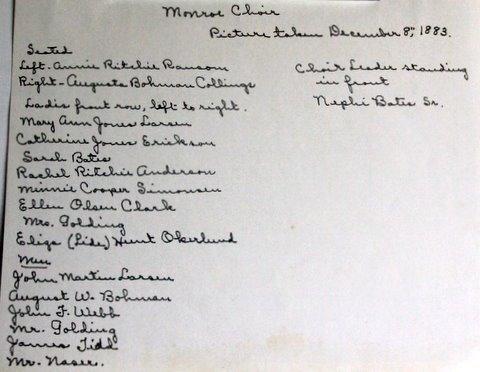 Monroe Choir
Picture taken December 8", 1883.
Seated
Left - Annie Ritchie Ransom
Right - Augusta Bohman Collings
Ladis front row, left to right.
Mary Ann Jones Larsen
Catherine Jones Erickson
Sarah Bates
Rachel Ritchie Anderson
Minnie Cooper Simonsen
Ellen Olsen Clark
Mrs. Golding
Eliza (Lide) Hunt Okerlund
Men
John Martin Larsen
August W. Bohman
John F. Webb
Mr. Golding
James Tidd
Mr. Naser.
Choir Leader standing
in front
Nephi Bates Sr.